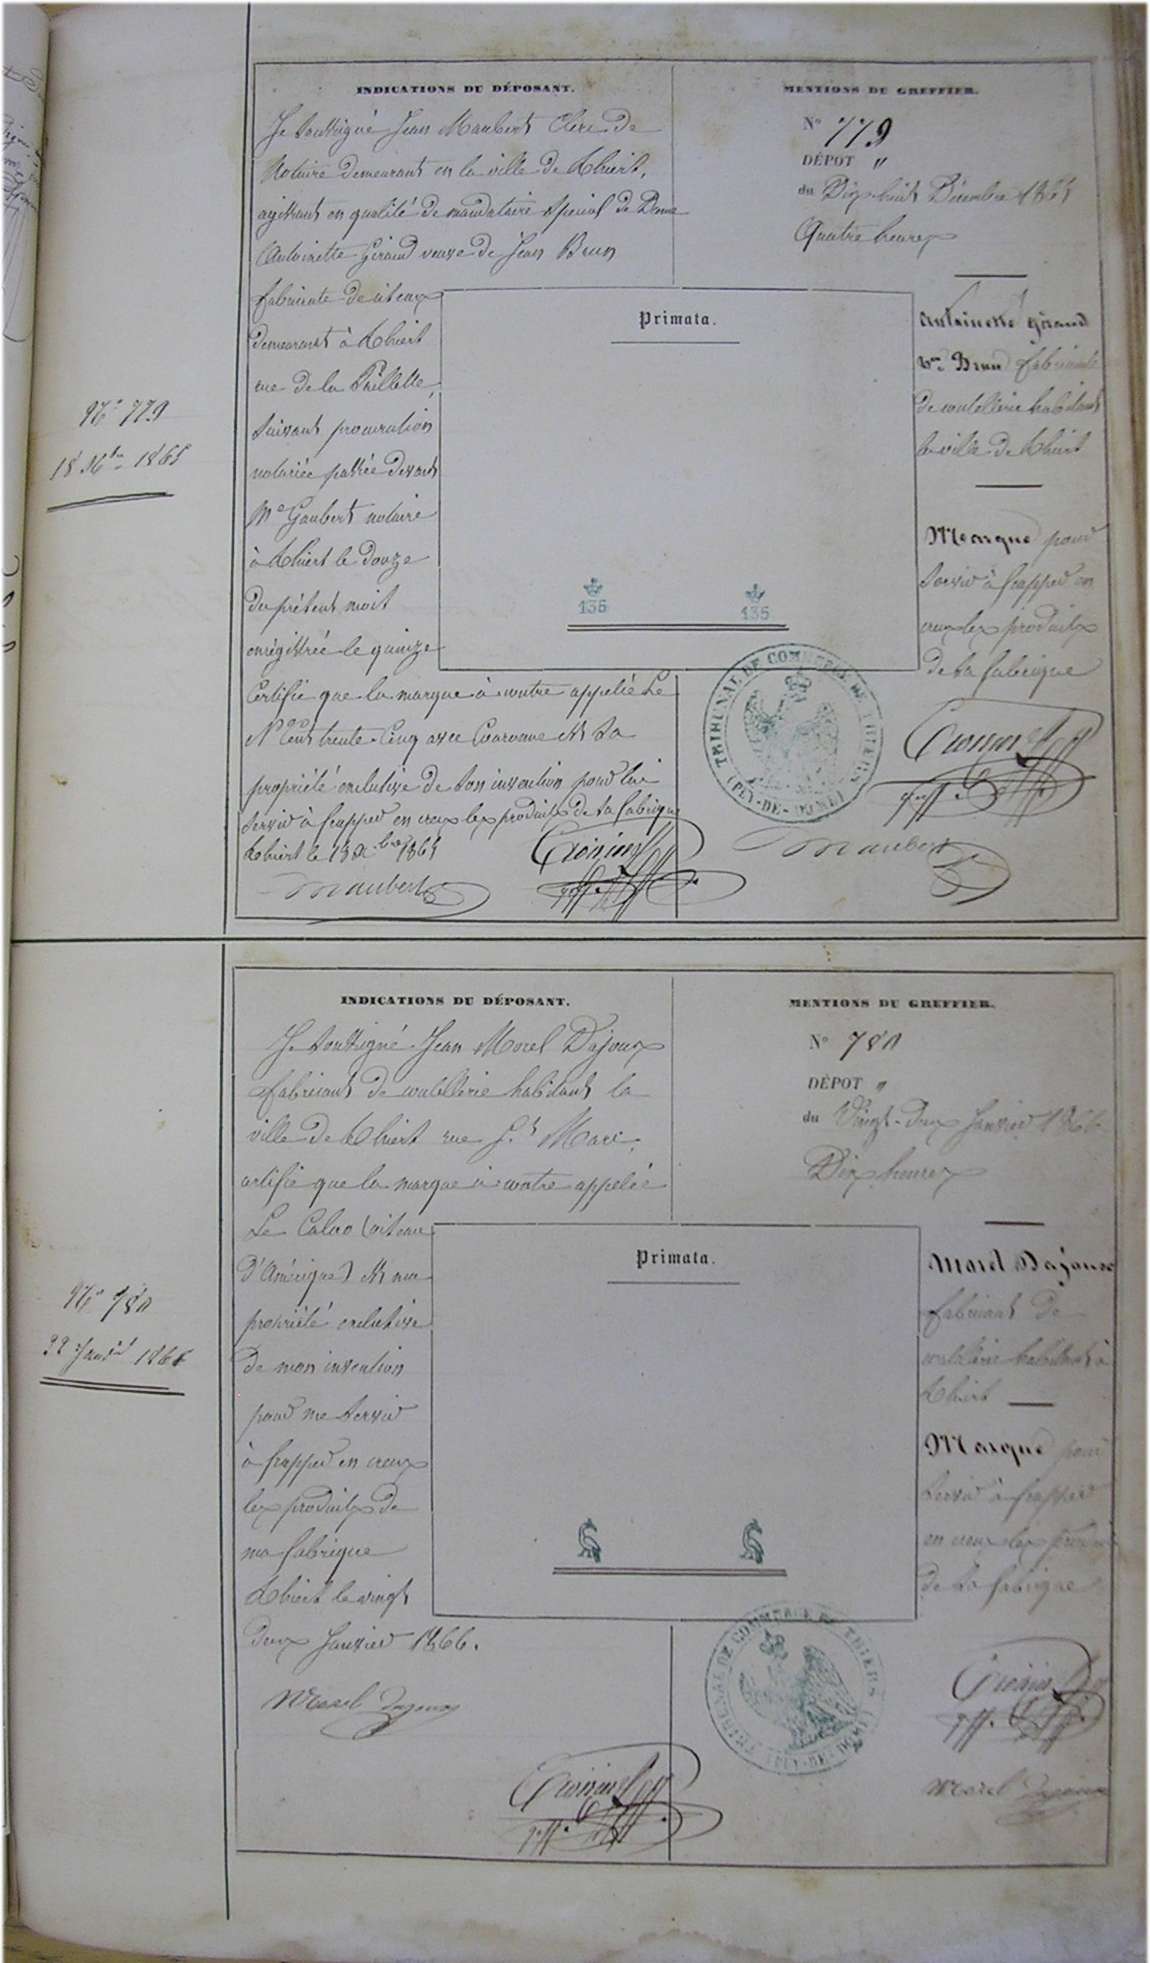 INDICATIONS DU DÉPOSANT.
Je soussigné Jean Maubert Clerc de
Notaire demeurant en la ville de Thiers,
agissant en qualité de mandataire spécial de Dame
Antoinette Giraud veuve de Jean Brun
fabricante de
demeurant à Thiers
rue de la
suivant procuration
notariée passée devant
Me Gaubert notaire
à Thiers le douze
du présent mois
enregistrée le quinze
Certifie que la marque ci-contre appelée Le
No Cent trente-Cinq avec Couronne est sa
propriété exclusive de son invention pour lui
servir à frapper en creux les produits de sa fabrique
Thiers le 18 Xbre 1865
Maubert
MENTIONS DU GREFFIER.
No 779
DÉPOT "
du Dix-huit Décembre 1865
Quatre heures
Antoinette Giraud
Vve Brun fabricante
de coutellerie habitant
la ville de Thiers
Marque pour
servir à frapper en
creux les produits
de sa fabrique
Maubert
Primata.
135 135
TRIBUNAL DE COMMERCE DE THIERS
(PUY-DE-DOME)
No 779
18 Xbre 1865
INDICATIONS DU DÉPOSANT.
Je soussigné Jean Morel Dajoux
fabricant de coutellerie habitant la
ville de Thiers rue St Marc,
certifie que la marque ci-contre appelée
Le Calao (oiseau
d'Amérique) est ma
propriété exclusive
de mon invention
pour me servir
à frapper en creux
les produits de
ma fabrique
Thiers le vingt
deux Janvier 1866.
Morel Dajoux
MENTIONS DU GREFFIER.
No 780
DÉPOT "
du Vingt-deux Janvier 1866
Dix heures
Morel Dajoux
fabricant de
coutellerie habitant à
Thiers
Marque pour
servir à frapper
en creux les produits
de sa fabrique
Morel Dajoux
Primata.
TRIBUNAL DE COMMERCE DE THIERS
(PUY-DE-DOME)
No 780
22 Janvr 1866